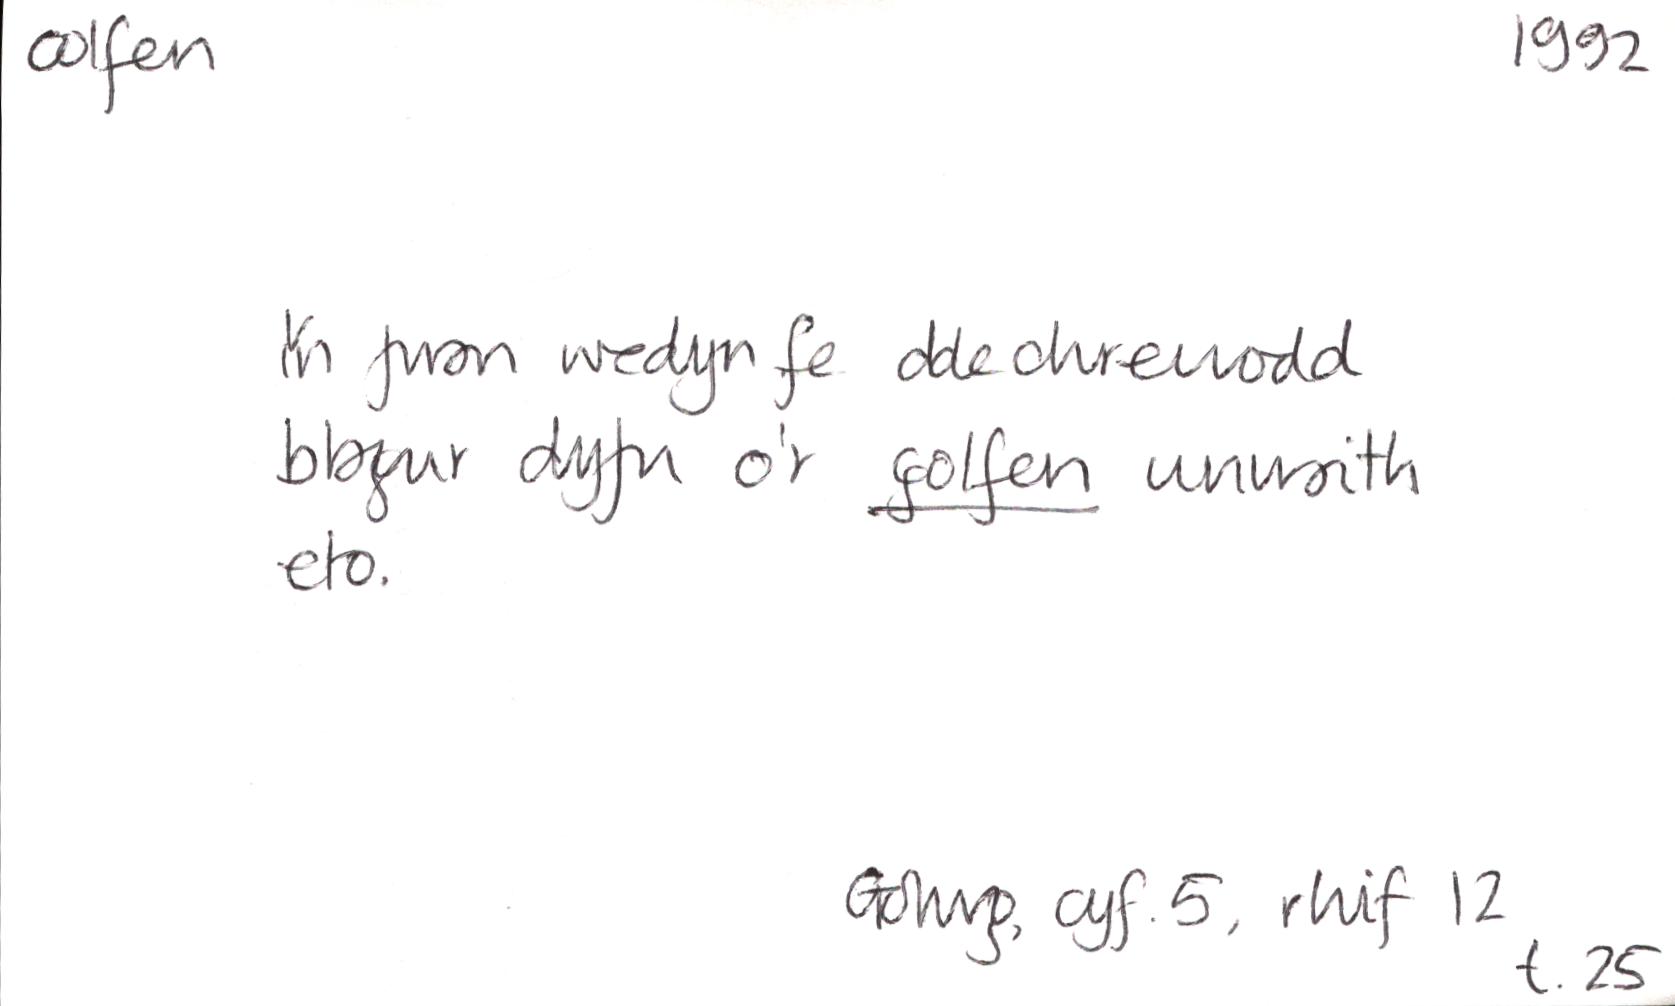 colfen 1992
Yn fuan wedyn fe ddechreuodd
blagur dyfu o'r golfen unwaith
eto.
Golwg, cyf. 5, rhif 12
t. 25